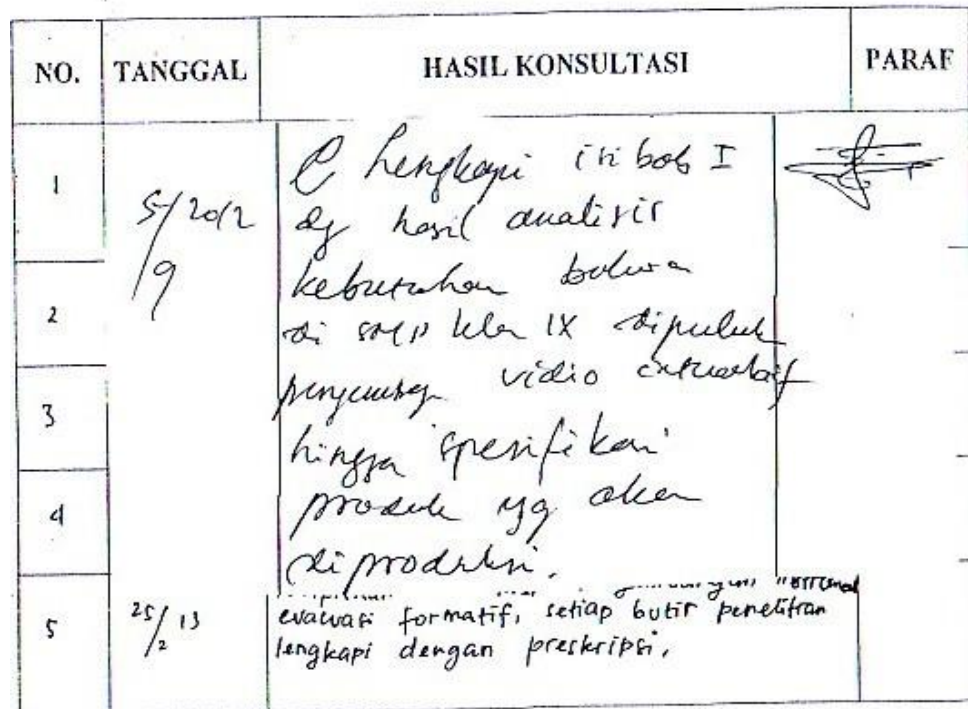 NO. TANGGAL HASIL KONSULTASI PARAF
1 lengkapi isi bab I
5/9 2012 dg hasil analisis
kebutuhan bahwa
2 di SMP kelas IX
video
3 hingga spesifikasi
4 produk yg akan
diproduksi.
5 25/2 13 evaluasi formatif, setiap butir penelitian
lengkapi dengan preskripsi.